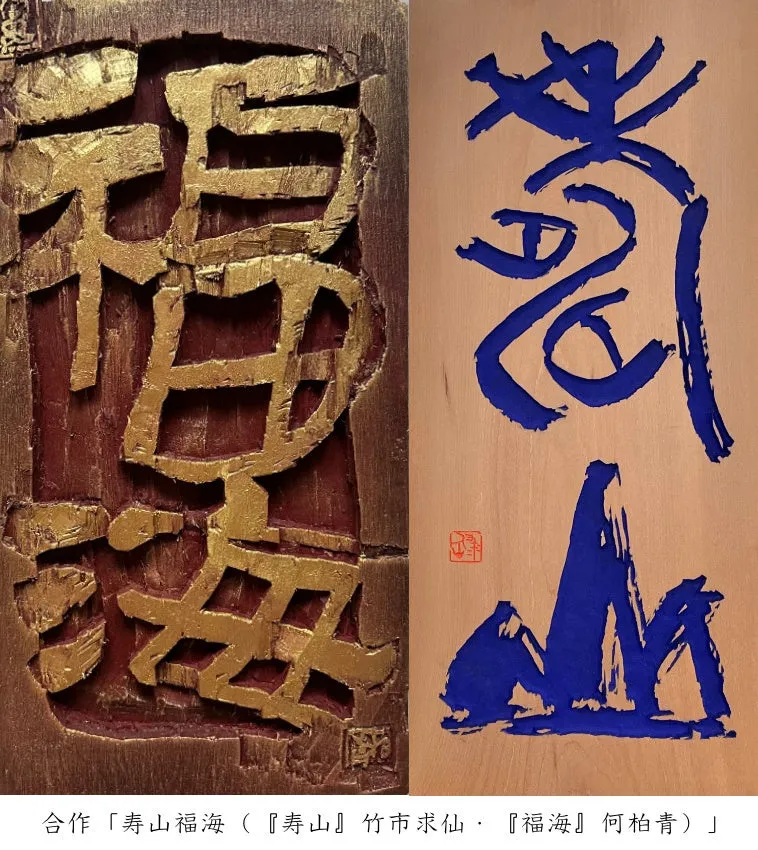 寿山
福海
合作「寿山福海（『寿山』竹市求仙·『福海』何柏青）」